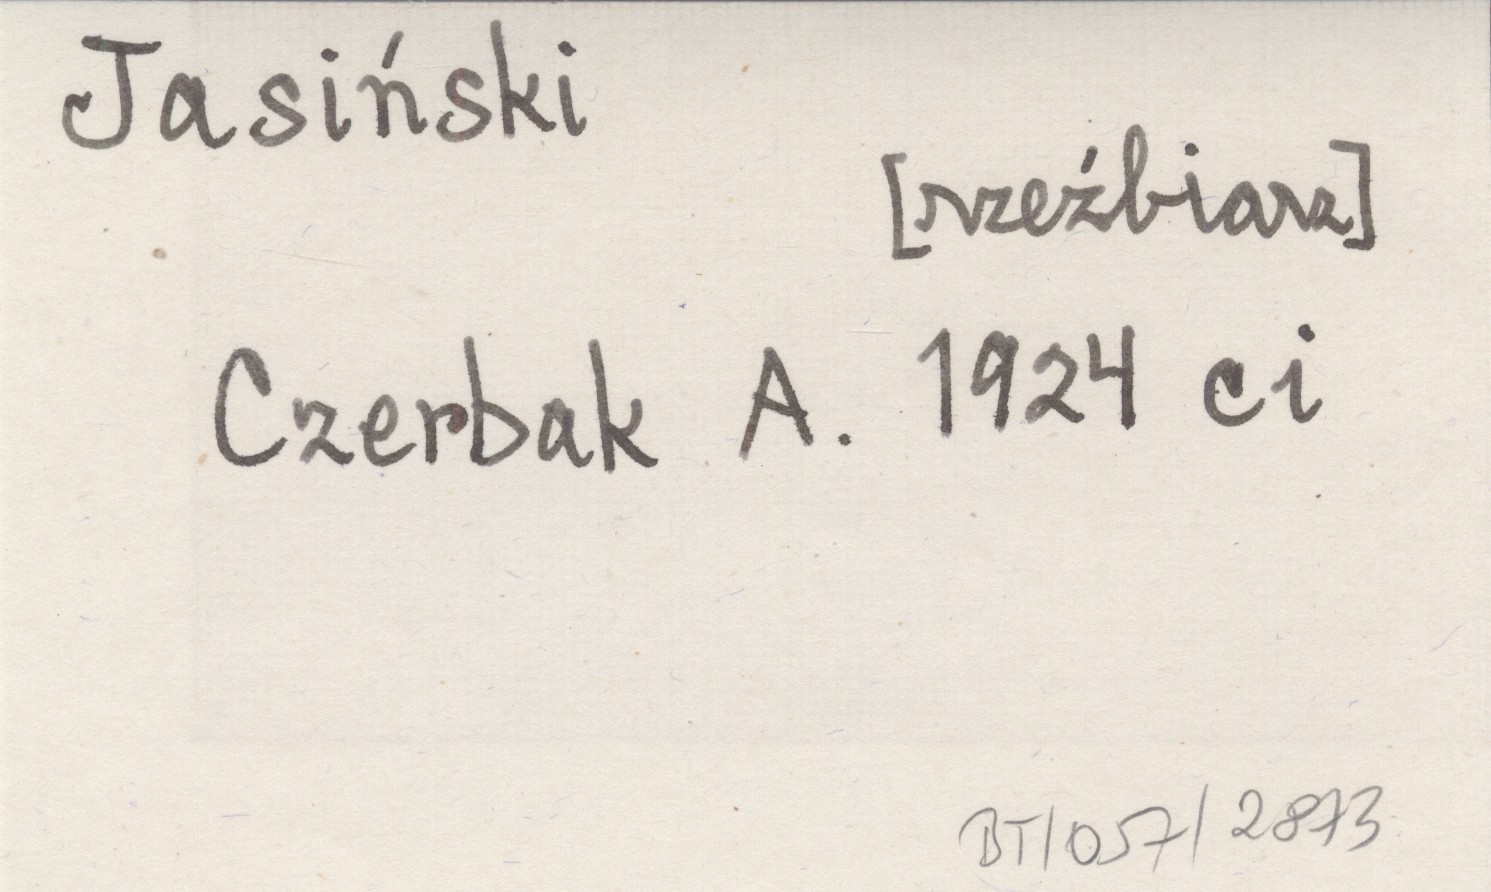 Jasiński
[rzeźbiarz]
Czerbak A. 1924 ci
BT/057/2873